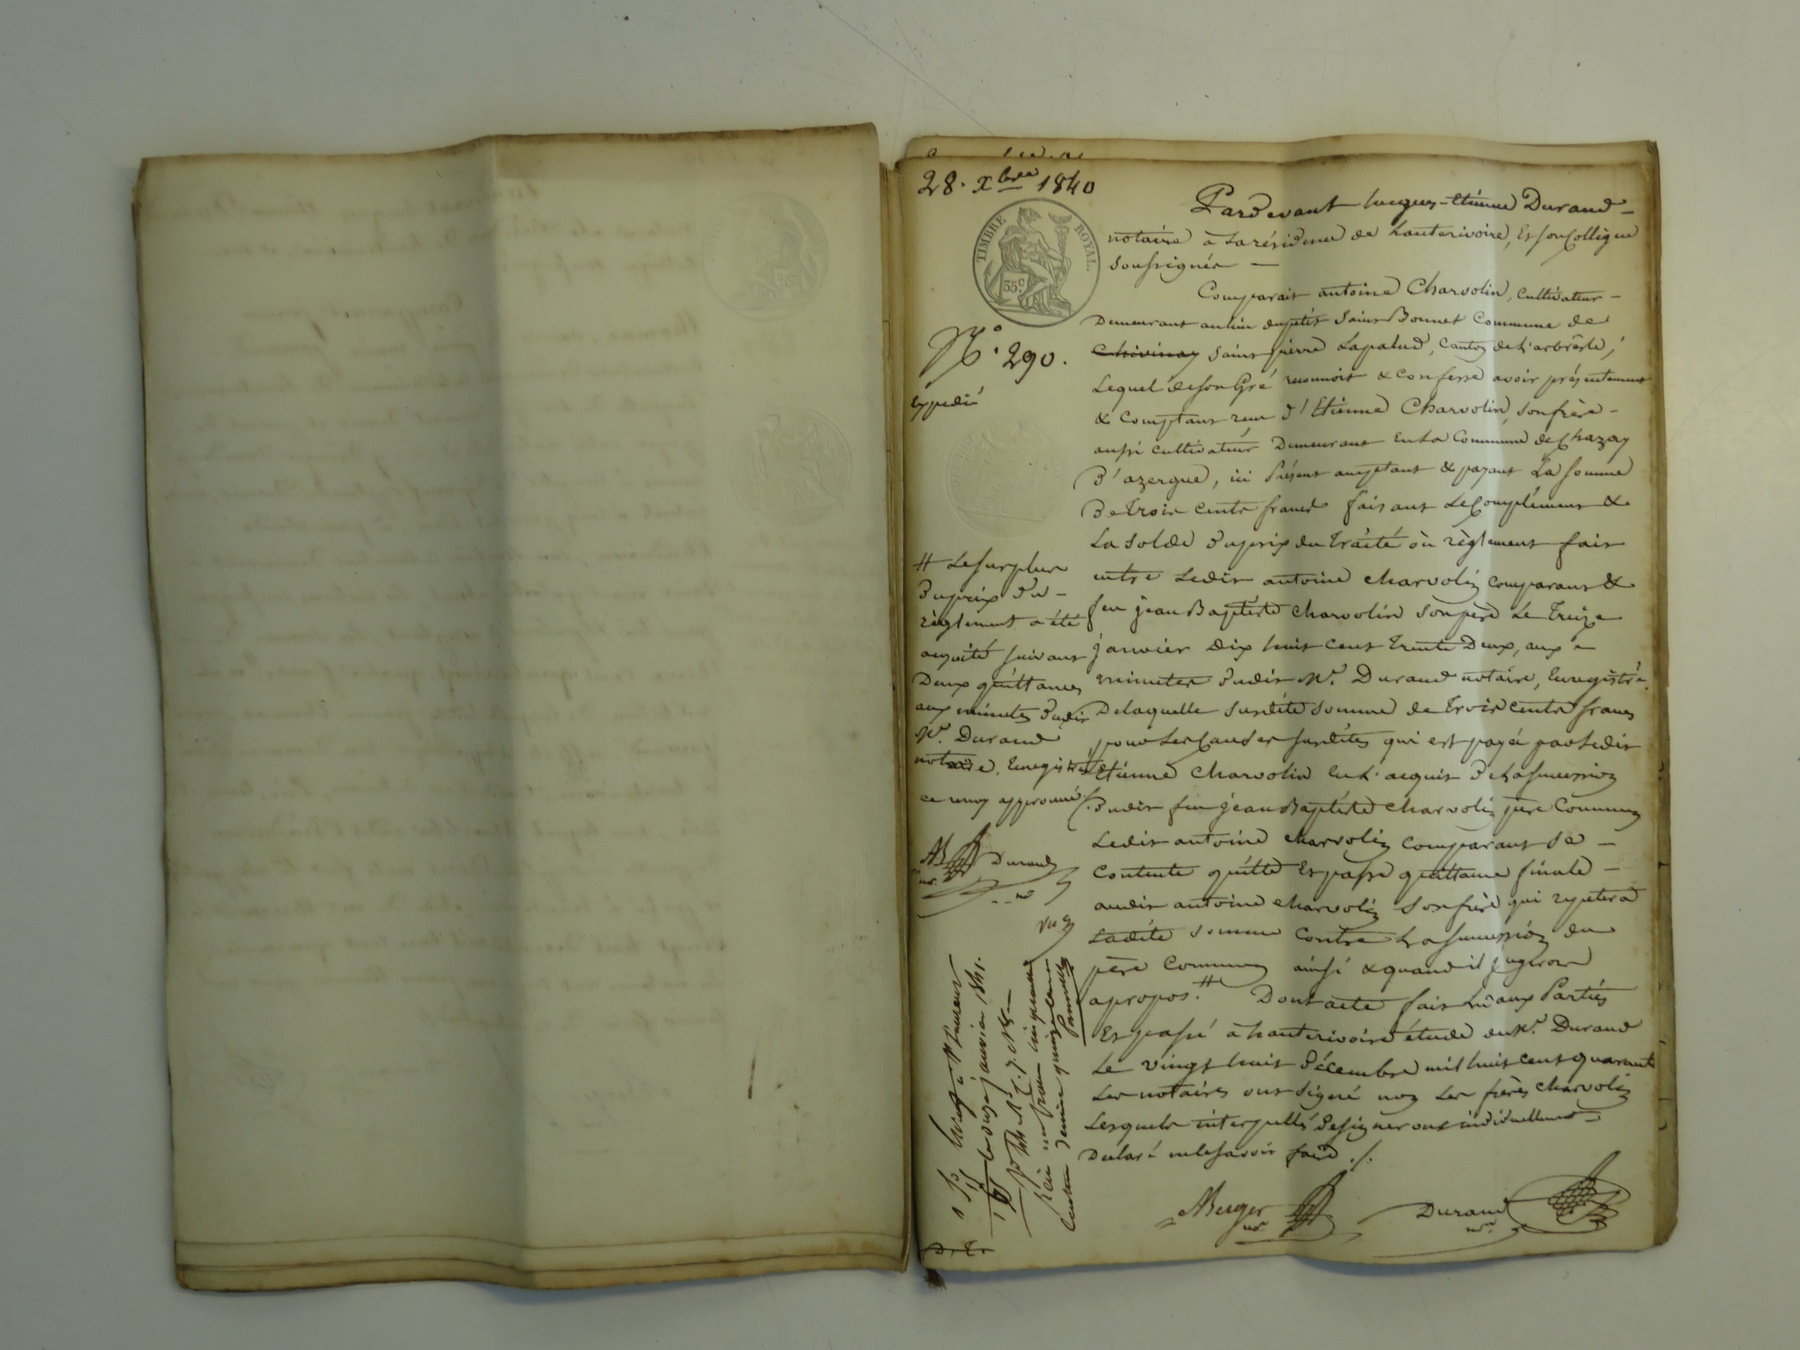 28. Xbre 1840
TIMBRE ROYAL.
35 c.
N.° 290.
expédié
Pardevant Jacques-Etienne Durand-
notaire à la résidence de hauterivoire, Et son Collègue
soussignés —
Comparait antoine Charvolin, cultivateur-
Demeurant au lieu dupetit Saint Bonnet Commune de
Chivinay Saint pierre Lapalud, Canton de L'arbrêsle,
Lequel de son Gré reconnoit & confesse avoir présentement
& Comptant reçu d'Etienne Charvolin, son frère-
aussi cultivateur Demeurant En La Commune de Chazay
D'azergue, ici Présent acceptant & payant La somme
De Trois Cents francs faisant Le Complément &
La Solde du prix du Traité ou règlement fait
entre Ledit antoine Charvolin comparant &
feu jean Baptiste Charvolin son père Le Treize
janvier Dix huit cent Trente Deux, aux -
minutes dudit Me. Durand notaire, Enregistré.
Delaquelle susdite somme de Trois Cents francs
pour Les Causes susdites qui est payée par Ledit
Etienne Charvolin En L'acquit de La succession
dudit feu jean Baptiste Charvolin père Commun
Ledit antoine Charvolin comparant se -
Contente quitte Et passe quittance finale -
audit antoine Charvolin son frère qui repetera
Ladite somme Contre La succession du
père Commun ainsi & quand il jugera
apropos.# Dont acte fait Lu aux Parties
Et passé à hauterivoire étude du Me. Durand
Le vingt huit Décembre mil huit cent quarante
Les notaires ont signé non Les frères Charvolin
Lesquels interpellés De signer ont individuellement -
Déclaré ne le savoir faire ./.
ABerger nre
Durand nre
# Le surplus
du prix du -
règlement a été
acquitté suivant
Deux quittances
aux minutes dudit
Me. Durand
notaire, Enregistrées
ce renvoi approuvé
AB nre Durand nre